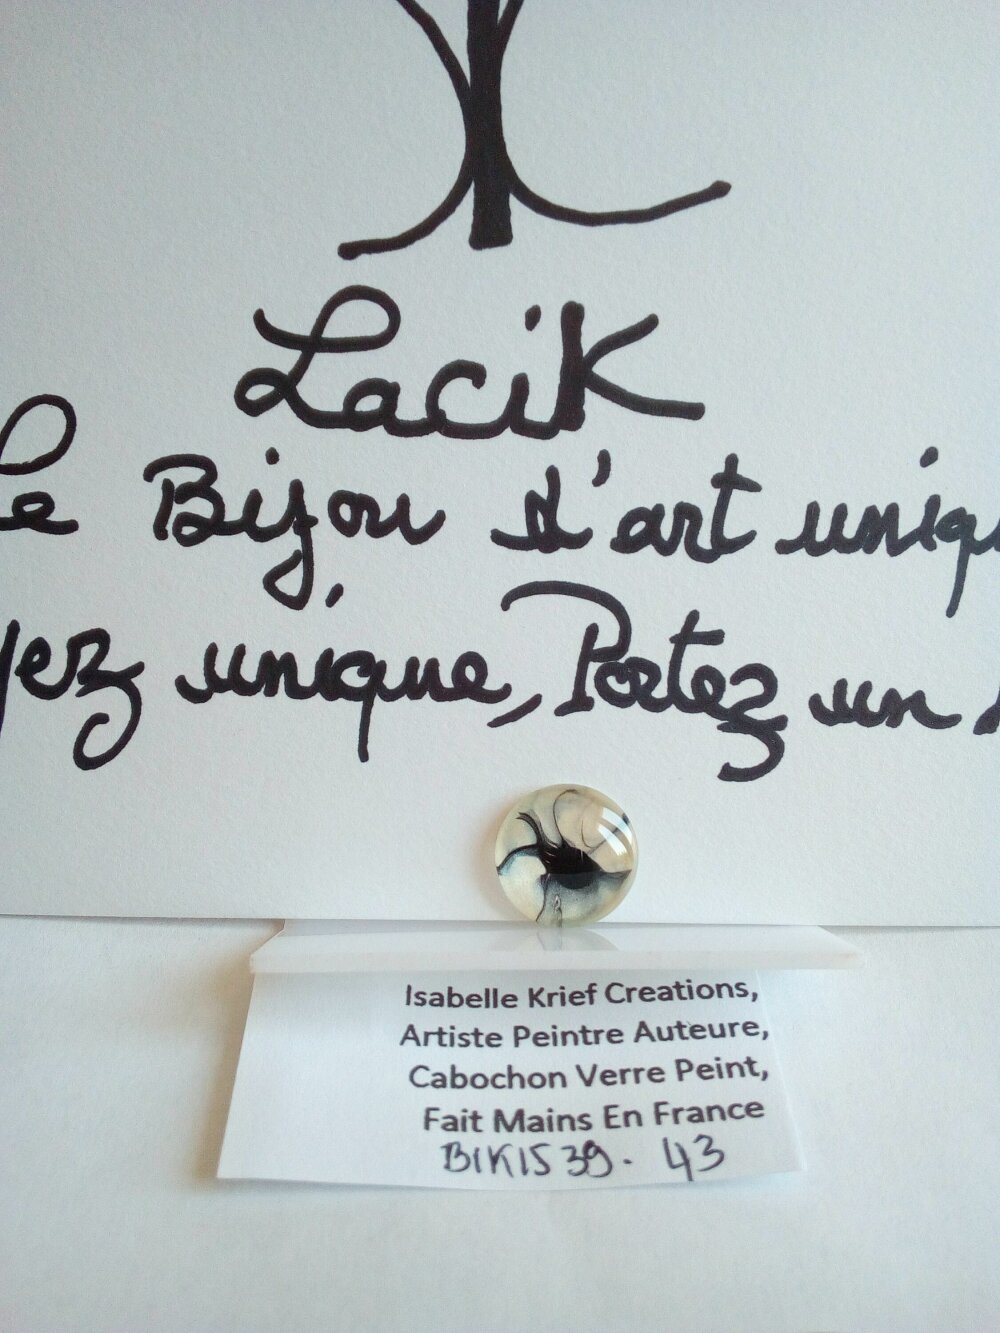 LaciK
Le Bijou d'art uniqu
yez unique, Portez un
Isabelle Krief Creations,
Artiste Peintre Auteure,
Cabochon Verre Peint,
Fait Mains En France
BIKIS39. 43